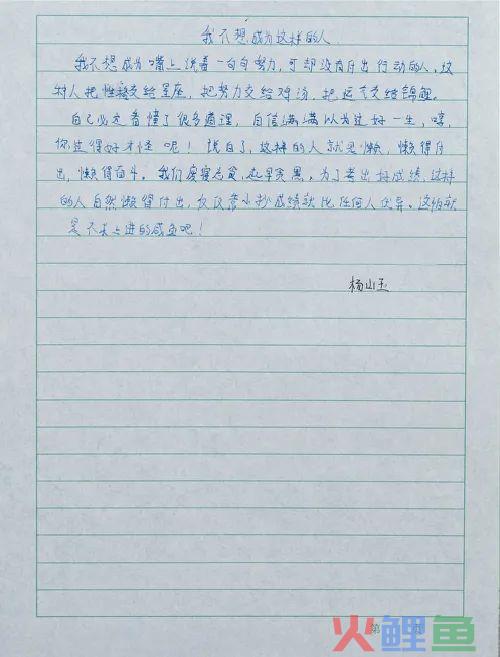 我不想成为这样的人
我不想成为嘴上说着一句句努力,可却没有付出行动的人,这
种人把性格交给星座,把努力交给鸡汤,把运气交给锦鲤。
自己必定看懂了很多道理,自信满满以为过好一生,哼,
你过得好才怪呢!说白了,这样的人就是懒,懒得付
出,懒得奋斗。我们废寝忘食,起早贪黑,为了考出好成绩,这样
的人自然懒得付出,仅仅靠小抄成绩就比任何人优异。这怕就
是不求上进的咸鱼吧!
杨山玉
第 页
火鲤鱼